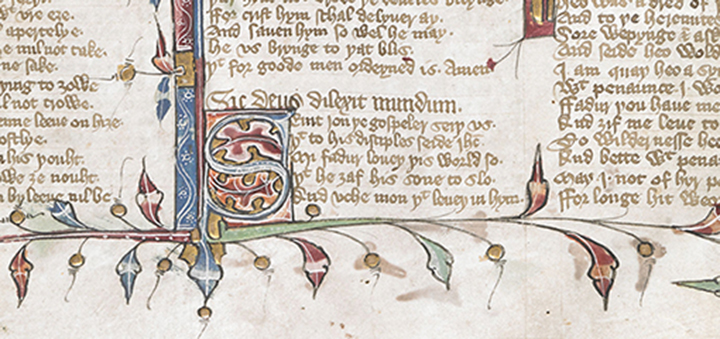 vr eȝe.
apertelye.
e mil not take.
ne sake.
yng to ȝowe
l not trowe.
ame leeue on hiȝe.
ostlye.
his þouht.
we ȝe nouht.
by leeue nil be
ffor crist hym schal delyuer ay.
And sauen hym so wel he may.
He vs brynge to þat blis.
Þt for goode men ordeyned is. Amen
Sic deus dilexit mundum.
Seint Jon þe gospeler seiþ vs.
Þt to his disciples seide ihc.
fadur loueþ þis world so.
Þt he ȝaf his sone to slo.
And vche mon þt leueþ in hym.
And to þe
Sore wepynge &
And seide heo wol
I am quaþ heo a
Wt penaunce I.
ffadur ȝou haue me
And ȝif me leue to
To wildernesse he
And bette wt pena
May I not of
ffor longe hit